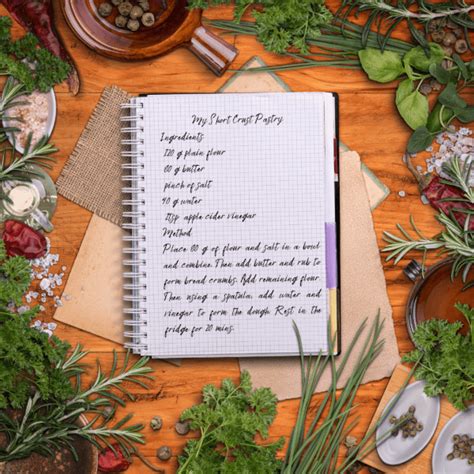 My Short Crust Pastry
Ingredients
120 g plain flour
60 g butter
pinch of salt
40 g water
1tsp apple cider vinegar
Method
Place 60 g of flour and salt in a bowl
and combine. Then add butter and rub to
form bread crumbs. Add remaining flour.
Then using a spatula, add water and
vinegar to form the dough. Rest in the
fridge for 20 mins.